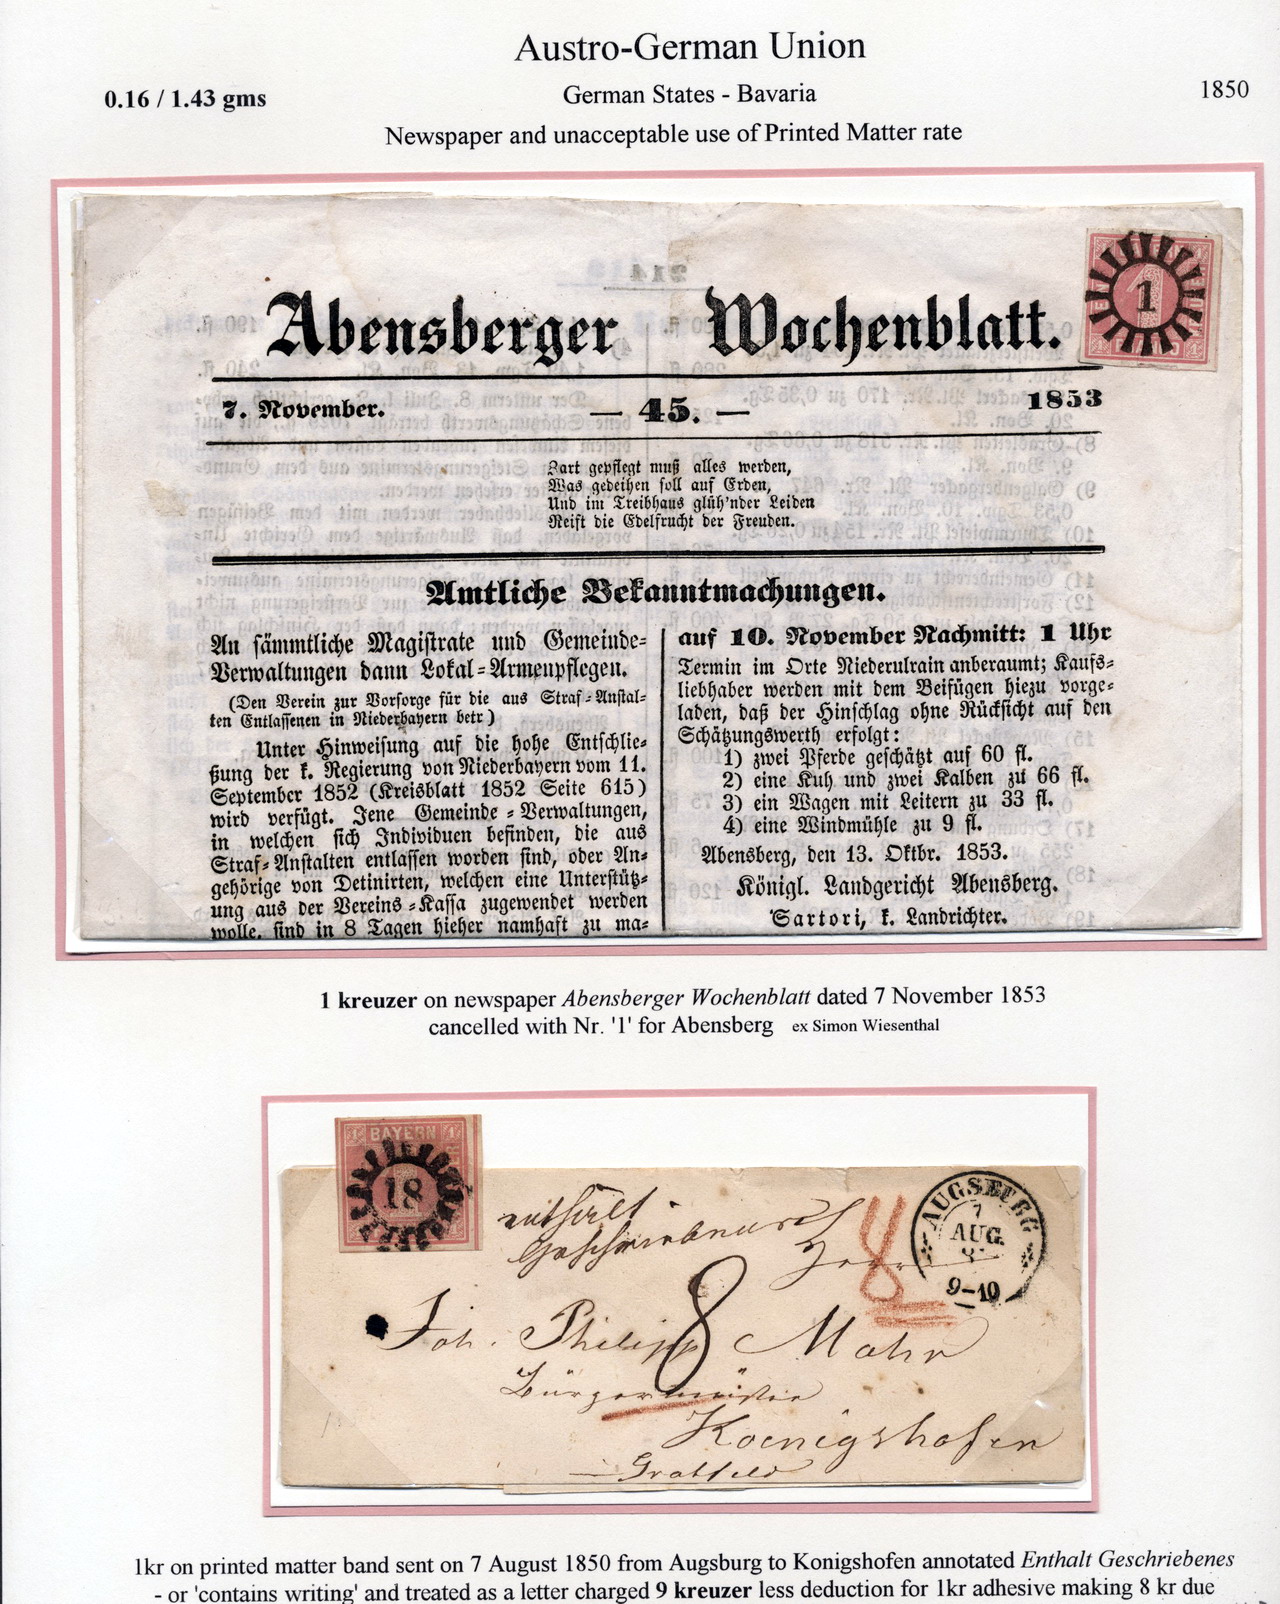 Austro-German Union
0.16 / 1.43 gms
German States - Bavaria
1850
Newspaper and unacceptable use of Printed Matter rate
1
Abensberger Wochenblatt.
7. November.
— 45. —
1853
Zart gepflegt muß alles werden,
Was gedeihen soll auf Erden,
Und im Treibhaus glüh'nder Leiden
Reift die Edelfrucht der Freuden.
Amtliche Bekanntmachungen.
An sämmtliche Magistrate und Gemeinde-
Verwaltungen dann Lokal-Armenpflegen.
(Den Verein zur Vorsorge für die aus Straf-Anstal-
ten Entlassenen in Niederbayern betr)
Unter Hinweisung auf die hohe Entschlie-
ßung der k. Regierung von Niederbayern vom 11.
September 1852 (Kreisblatt 1852 Seite 615)
wird verfügt. Jene Gemeinde-Verwaltungen,
in welchen sich Individuen befinden, die aus
Straf-Anstalten entlassen worden sind, oder An-
gehörige von Detinirten, welchen eine Unterstütz-
ung aus der Vereins-Kassa zugewendet werden
wolle, sind in 8 Tagen hieher namhaft zu ma-
auf 10. November Nachmitt: 1 Uhr
Termin im Orte Niederulrain anberaumt; Kaufs-
liebhaber werden mit dem Beifügen hiezu vorge-
laden, daß der Hinschlag ohne Rücksicht auf den
Schätzungswerth erfolgt:
1) zwei Pferde geschätzt auf 60 fl.
2) eine Kuh und zwei Kalben zu 66 fl.
3) ein Wagen mit Leitern zu 33 fl.
4) eine Windmühle zu 9 fl.
Abensberg, den 13. Oktbr. 1853.
Königl. Landgericht Abensberg.
Sartori, k. Landrichter.
1 kreuzer on newspaper Abensberger Wochenblatt dated 7 November 1853
cancelled with Nr. '1' for Abensberg ex Simon Wiesenthal
BAYERN
18
enthält
Geschriebenes
8
AUGSBURG
7
AUG.
9-10
8
Joh. Philipp Mahr
Bürgermeister
Koenigshofen
Grabfeld
1kr on printed matter band sent on 7 August 1850 from Augsburg to Konigshofen annotated Enthalt Geschriebenes
- or 'contains writing' and treated as a letter charged 9 kreuzer less deduction for 1kr adhesive making 8 kr due